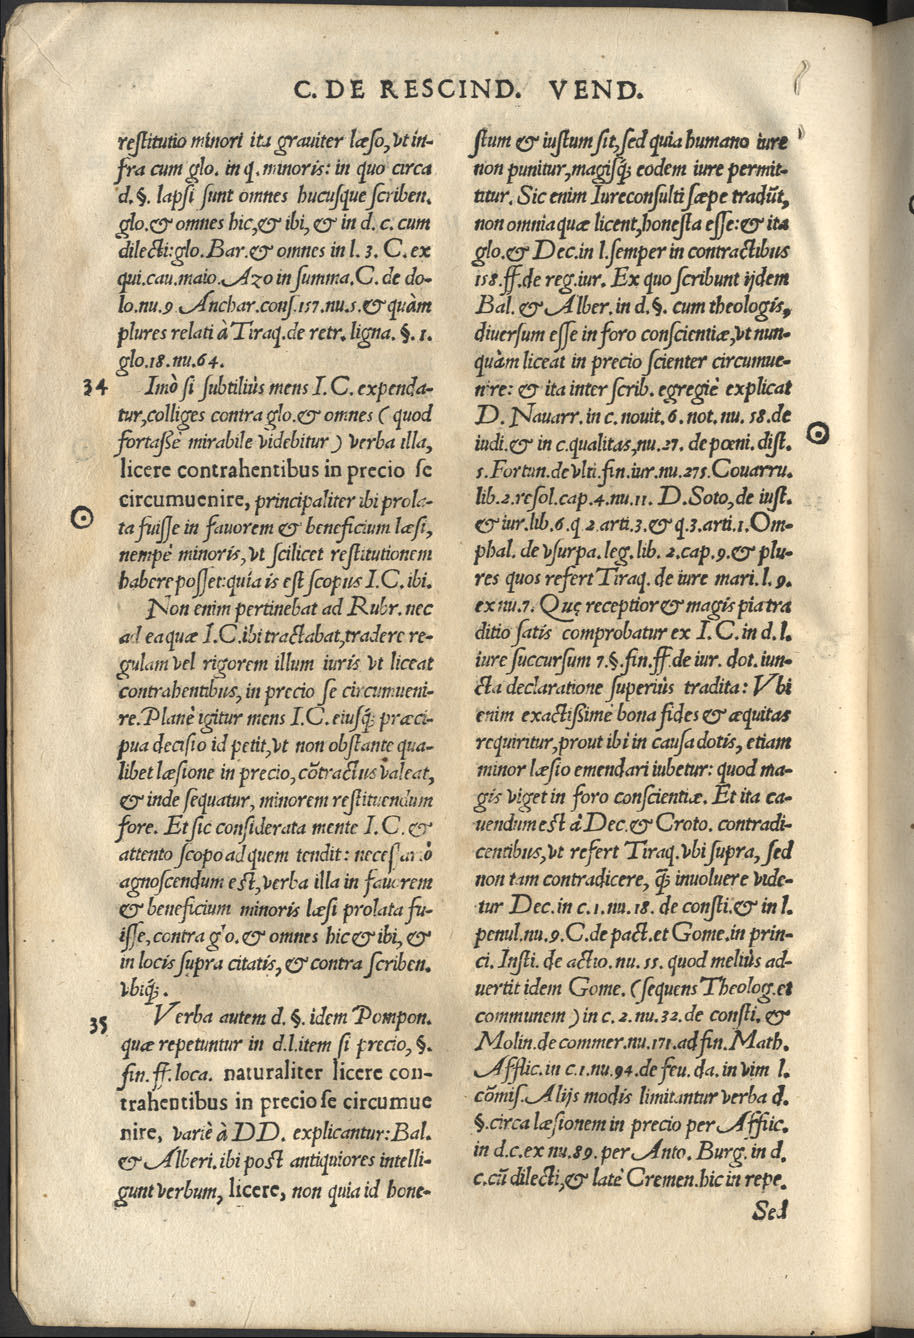 C. DE RESCIND. VEND.
restitutio minori ita grauiter læso, vt in-
fra cum glo. in q. minoris: in quo circa
d. §. lapsi sunt omnes hucusque scriben.
glo. & omnes hic, & ibi, & in d. c. cum
dilecti: glo. Bar. & omnes in l. 3. C. ex
qui. cau. maio. Azo in summa. C. de do-
lo. nu. 9. Anchar. cons. 157. nu. 5. & quàm
plures relati à Tiraq. de retr. ligna. §. 1.
glo. 18. nu. 64.
34 Imò si subtiliùs mens I. C. expenda-
tur, colliges contra glo. & omnes (quod
fortassè mirabile videbitur) verba illa,
licere contrahentibus in precio se
circumuenire, principaliter ibi prola-
ta fuisse in fauorem & beneficium læsi,
nempè minoris, vt scilicet restitutionem
habere posset: quia is est scopus I. C. ibi.
Non enim pertinebat ad Rubr. nec
ad ea quæ I. C. ibi tractabat, tradere re-
gulam vel rigorem illum iuris vt liceat
contrahentibus, in precio se circumueni-
re. Planè igitur mens I. C. eiusq́; præci-
pua decisio id petit, vt non obstante qua-
libet læsione in precio, cõtractus valeat,
& inde sequatur, minorem restituendum
fore. Et sic considerata mente I. C. &
attento scopo ad quem tendit: necessariò
agnoscendum est, verba illa in fauorem
& beneficium minoris læsi prolata fu-
isse, contra glo. & omnes hic & ibi, &
in locis supra citatis, & contra scriben.
vbiq́;.
35 Verba autem d. §. idem Pompon.
quæ repetuntur in d. l. item si precio, §.
fin. ff. loca. naturaliter licere con-
trahentibus in precio se circumue
nire, variè à DD. explicantur: Bal.
& Alberi. ibi post antiquiores intelli-
gunt verbum, licere, non quia id hone-
stum & iustum sit, sed quia humano iure
non punitur, magisq́; eodem iure permit-
titur. Sic enim Iureconsulti sæpe tradũt,
non omnia quæ licent, honesta esse: & ita
glo. & Dec. in l. semper in contractibus
158. ff. de reg. iur. Ex quo scribunt ijdem
Bal. & Alber. in d. §. cum theologis,
diuersum esse in foro conscientiæ, vt nun-
quàm liceat in precio scienter circumue-
nire: & ita inter scrib. egregiè explicat
D. Nauarr. in c. nouit. 6. not. nu. 58. de
iudi. & in c. qualitas, nu. 27. de pœni. dist.
5. Fortun. de vlti. fin. iur. nu. 275. Couarru.
lib. 2. resol. cap. 4. nu. 11. D. Soto, de iust.
& iur. lib. 6. q 2. arti. 3. & q. 3. arti. 1. Om-
phal. de vsurpa. leg. lib. 2. cap. 9. & plu-
res quos refert Tiraq. de iure mari. l. 9.
ex nu. 7. Quę receptior & magis pia tra
ditio satis comprobatur ex I. C. in d. l.
iure succursum 7. §. fin. ff. de iur. dot. iun-
cta declaratione superiùs tradita: Vbi
enim exactissimè bona fides & æquitas
requiritur, prout ibi in causa dotis, etiam
minor læsio emendari iubetur: quod ma-
gis viget in foro conscientiæ. Et ita ca-
uendum est à Dec. & Croto. contradi-
centibus, vt refert Tiraq. vbi supra, sed
non tam contradicere, q̃; inuoluere vide-
tur Dec. in c. 1. nu. 18. de consti. & in l.
penul. nu. 9. C. de pact. et Gome. in prin-
ci. Insti. de actio. nu. 55. quod meliùs ad-
uertit idem Gome. (sequens Theolog. et
communem) in c. 2. nu. 32. de consti. &
Molin. de commer. nu. 171. ad fin. Math.
Afflic. in c. 1. nu. 94. de feu. da. in vim l.
cõmis. Alijs modis limitantur verba d.
§. circa læsionem in precio per Afflic.
in d. c. ex nu. 89. per Anto. Burg. in d.
c. cũ dilecti, & latè Cremen. hic in repe.
Sed